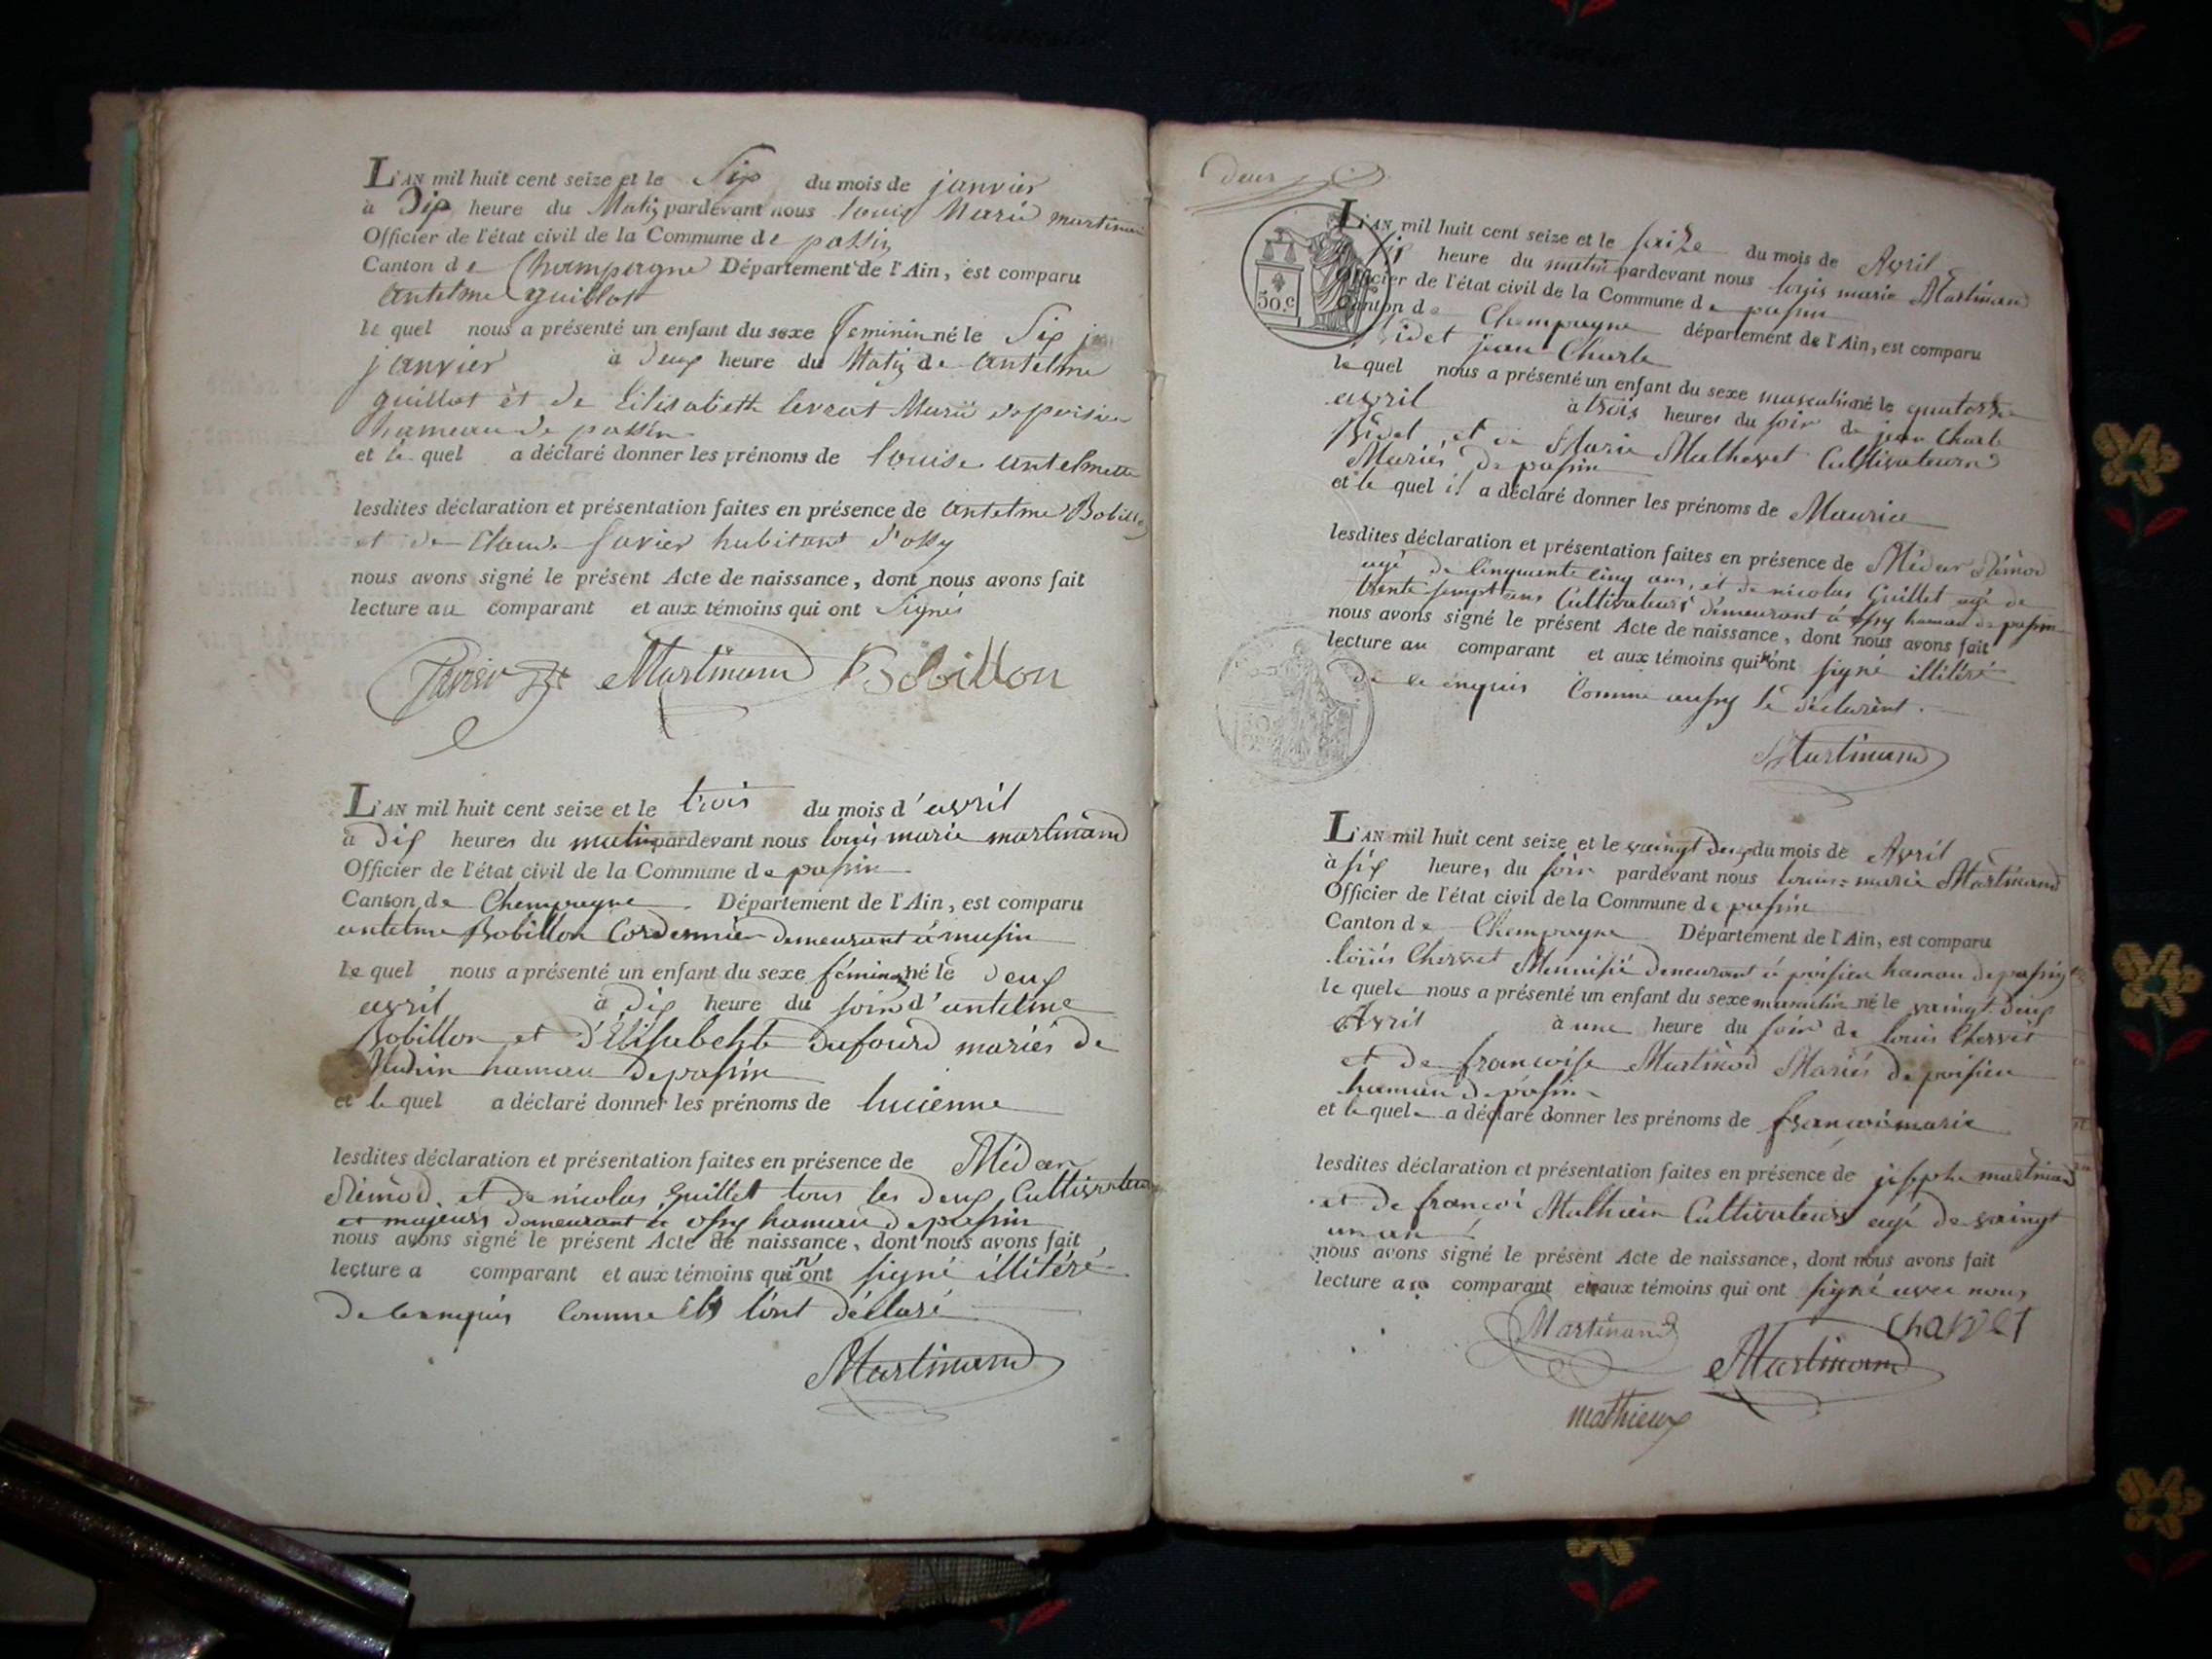 L'AN mil huit cent seize et le Six du mois de janvier
à Dix heure du Matin pardevant nous louis Marie martinand
Officier de l'état civil de la Commune de passin
Canton de Champagne Département de l'Ain, est comparu
antelme guillot
le quel nous a présenté un enfant du sexe feminin né le Six
janvier à deux heure du Matin de antelme
guillot et de Elisabeth levrat Marié de poisieu
hameau de passin
et le quel a déclaré donner les prénoms de louise antelmette
lesdites déclaration et présentation faites en présence de antelme Bobillon
et de Claude Savier habitant d'ossy
nous avons signé le présent Acte de naissance, dont nous avons fait
lecture au comparant et aux témoins qui ont Signés
Martinand Bobillon
L'AN mil huit cent seize et le trois du mois d'avril
à dix heures du matin pardevant nous louis marie martinand
Officier de l'état civil de la Commune de passin
Canton de Champagne Département de l'Ain, est comparu
antelme Bobillon Cordonnier demeurant à musin
le quel nous a présenté un enfant du sexe féminin né le deux
avril à dix heure du soir d'antelme
Bobillon et d'Elisabeht dufourd mariés de
Musin hamau de passin
et le quel a déclaré donner les prénoms de lucienne
lesdites déclaration et présentation faites en présence de Médar
Rémod et de nicolas Guillet tous les deux Cultivateur
et majeurs demeurant à ossy hamau de passin
nous avons signé le présent Acte de naissance, dont nous avons fait
lecture a comparant et aux témoins qui n'ont signé illitéré
de ce enquis comme ils l'ont déclaré
Martinand
deux
L'AN mil huit cent seize et le saize du mois de Avril
heure du matin pardevant nous louis marie Martinand
Officier de l'état civil de la Commune de passin
50.c
Canton de Champagne département de l'Ain, est comparu
Bidet jean Charle
le quel nous a présenté un enfant du sexe masculin né le quatorze
avril à trois heures du soir de jean Charle
Bidet, et de Marie Mathevet Cultivateurs
Mariés de passin
et le quel il a déclaré donner les prénoms de Maurice
lesdites déclaration et présentation faites en présence de Médar Rémod
agé de cinquante cinq ans, et de nicolas Guillet agé de
trente sempt ans Cultivateurs demeurant à ossy hamau de passin
nous avons signé le présent Acte de naissance, dont nous avons fait
lecture au comparant et aux témoins qui n'ont signé illitéré
de ce enquis comme aussy le déclarent.
Martinand
L'AN mil huit cent seize et le vaingt deux du mois de Avril
à six heures du soir pardevant nous louis=marie Martinand
Officier de l'état civil de la Commune de passin
Canton de Champagne Département de l'Ain, est comparu
louis Chervet Menuisié demeurant à poisieu hamau de passin
le quele nous a présenté un enfant du sexe masculin né le vaingt deux
Avril à une heure du soir de louis Chervet
et de francoise Martinod Mariés de poisieu
hamau de passin
et le quele a déclaré donner les prénoms de françoimarie
lesdites déclaration et présentation faites en présence de josephe martinand
et de françoi Mathieu Cultivateurs agé de vaingt
un an
nous avons signé le présent Acte de naissance, dont nous avons fait
lecture au comparant et aux témoins qui ont signé avec nous
Martinand Charvet
Martinand
mathieux